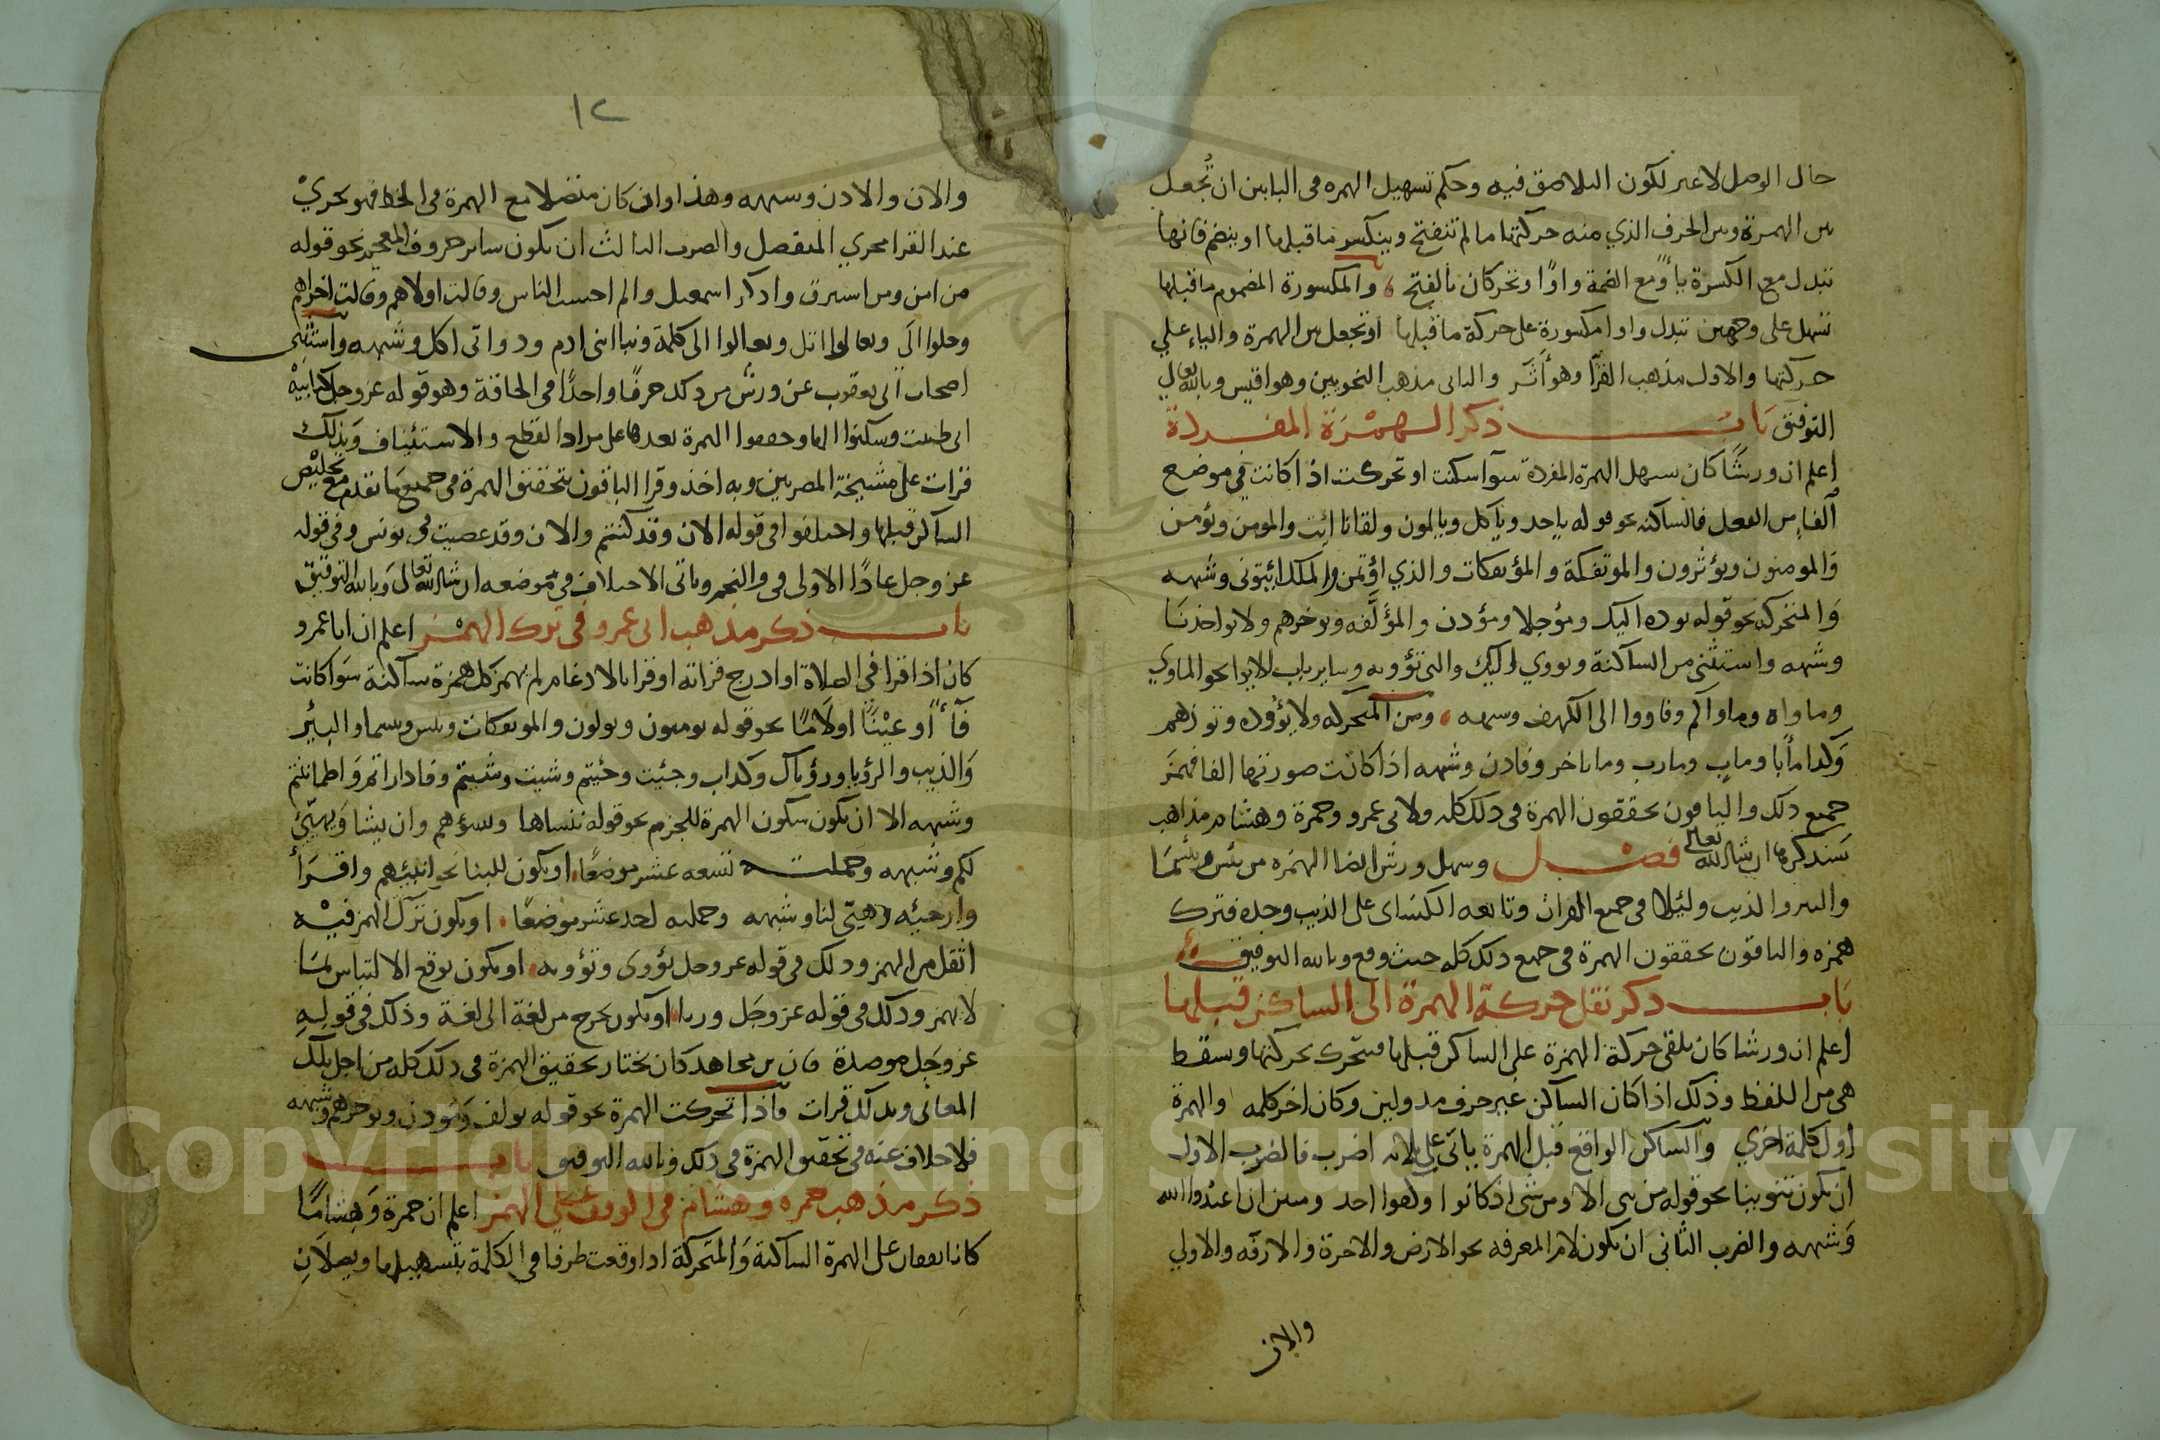 حال الوصل لا غير لكون التلاصق فيه وحكم تسهيل الهمزه في البابين ان تُجعل
بين الهمزة وبين الحرف الذي منه حركتها ما لم تنفتح وينكسر ما قبلها او ينضم فانها
تبدل مع الكسرة ياً ومع الضمة واوًا وتحركان بالفتح والمكسورة المضموم ما قبلها
تسهل على وجهين تبدل واوا مكسورة على حركة ما قبلها او تجعل بين الهمزة والياء على
حركتها والاول مذهب القرّا وهو أثر والثاني مذهب النحويين وهو اقيس وبالله تعالى
التوفيق باب ذكر الهمْزَة المفردة
اعلم ان ورشًا كان يسهل الهمزة المفردة سوآ سكنت او تحركت اذا كانت في موضع
الفاء من الفعل فالساكنه نحو قوله ياخذ وياكل ويالمون ولقانا ائت والمومن ويؤمن
والمومنون ويؤثرون والموتفكة والمؤتفكات والذي اؤتمن والملك ائتوني وشبهه
والمتحركه نحو قوله يوده اليك ومؤجلا ومؤذن والمؤلَّفه ويوخرهم ولا يواخذنا
وشبهه واستثنى من الساكنة وتووي اليك والتي تؤويه وساير باب الايوا نحو الماوي
وماواه وماواكم وفاووا الى الكهف وشبهه ومن المتحركه ولا يؤوده وتوزهم
وكذا مأبا وماب ومارب وما تاخر وفاذن وشبهه اذا كانت صورتها الفا فهمَز
جميع ذلك والباقون يحققون الهمزة في ذلك كله ولابي عمرو وحمزة وهشام مذاهب
سنذكرها ان شا الله تعالى فصل وسهل ورش ايضا الهمزه من بئس وبئسما
والبير والذيب ولئلا في جميع القران وتابعه الكساى على الذيب وحده فترك
همزه والباقون يحققون الهمزة في جميع ذلك كله حيث وقع وبالله التوفيق
باب ذكر نقل حركة الهمزة الى الساكن قبلها
اعلم ان ورشا كان يلقى حركة الهمزة على الساكن قبلها فيتحرك بحركتها وسقط
هي من اللفظ وذلك اذا كان الساكن غير حرف مد ولين وكان اخر كلمه والهمزة
اول كلمة اخري والساكن الواقع قبل الهمزة ياتى على ثلاثه اضرب فالضرب الاول
ان يكون تنوينا نحو قوله من نبي الا ومن شي اذ كانوا وكفوا احد ومبين ان اعبدوا الله
وشبهه والضرب الثاني ان يكون لام المعرفه نحو الارض والاخرة والازفه والاولي
والان
١٢
والان والاذن وشبهه وهذا وان كان متصلا مع الهمزة في الخط فهو يجري
عند القرا مجري المنفصل والضرب الثالث ان يكون ساير حروف المعجم نحو قوله
من امن ومن استبرق واذكر اسمعيل والم احسب الناس وقالت اولاهم وقالت اخراهم
وخلوا الى وتعالوا اتل وتعالوا الى كلمة ونبا ابنى ادم وذواتى اكل وشبهه واستثنى
اصحاب ابي يعقوب عن ورش من ذلك حرفًا واحدًا في الحاقة وهو قوله عز وجل كتابيه
انى ظننت فسكنوا الها وحققوا الهمزة بعدها على مراد القطع والاستئناف وبذلك
قرات على مشيخة المصريين وبه اخذ وقرا الباقون بتحقيق الهمزة في جميع ما تقدم مع تخليص
الساكن قبلها واختلفوا في قوله الان وقد كنتم والان وقد عصيت في يونس وفي قوله
عز وجل عادًا الاولى في والنجم وياتى الاختلاف في موضعه ان شا الله تعالى وبالله التوفيق
باب ذكر مذهب ابى عمرو في ترك الهمْز اعلم ان ابا عمرو
كان اذا قرا في الصلاة او ادرج قراته او قرا بالادغام لم يهمز كل همزة ساكنة سوا كانت
فآءً او عيْنًا اولامًا نحو قوله يومنون ويولون والموتفكات وبئس وبئسما والبئر
والذيب والرؤيا ورؤياك وكداب وجئت وجئتم وشيت وشيتم وفاداراتم واطماننتم
وشبهه الا ان يكون سكون الهمزة للجزم نحو قوله ننساها وتسؤهم وان يشا ويهيّئ
لكم وشبهه وجملته تسعه عشر موضعًا او يكون للبنا نحو انبئهم واقرأ
وارجئه وهيّئ لنا وشبهه وجملته احد عشر موضعًا او يكون ترك الهمز فيه
اثقل من الهمز وذلك في قوله عز وجل تؤوى وتؤويه او يكون يوقع الالتباس بما
لا يهمز وذلك في قوله عز وجل وريا او يكون يخرج من لغة الى لغة وذلك في قوله
عز وجل موصدة فان بن مجاهد كان يختار تحقيق الهمزة في ذلك كله من اجل تلك
المعاني وبذلك قرات واذا تحركت الهمزة نحو قوله يولف ومؤذن ويوخرهم وشبهه
فلا خلاف عنه في تحقيق الهمزة في ذلك وبالله التوفيق باب
ذكر مذهب حمزه وهشام في الوقف على الهمز اعلم ان حمزة وهشامًا
كانا يقفان على الهمزة الساكنة والمتحركة اذا وقعت طرفا في الكلمة بتسهيلها ويصلان
Copyright © King Saud University